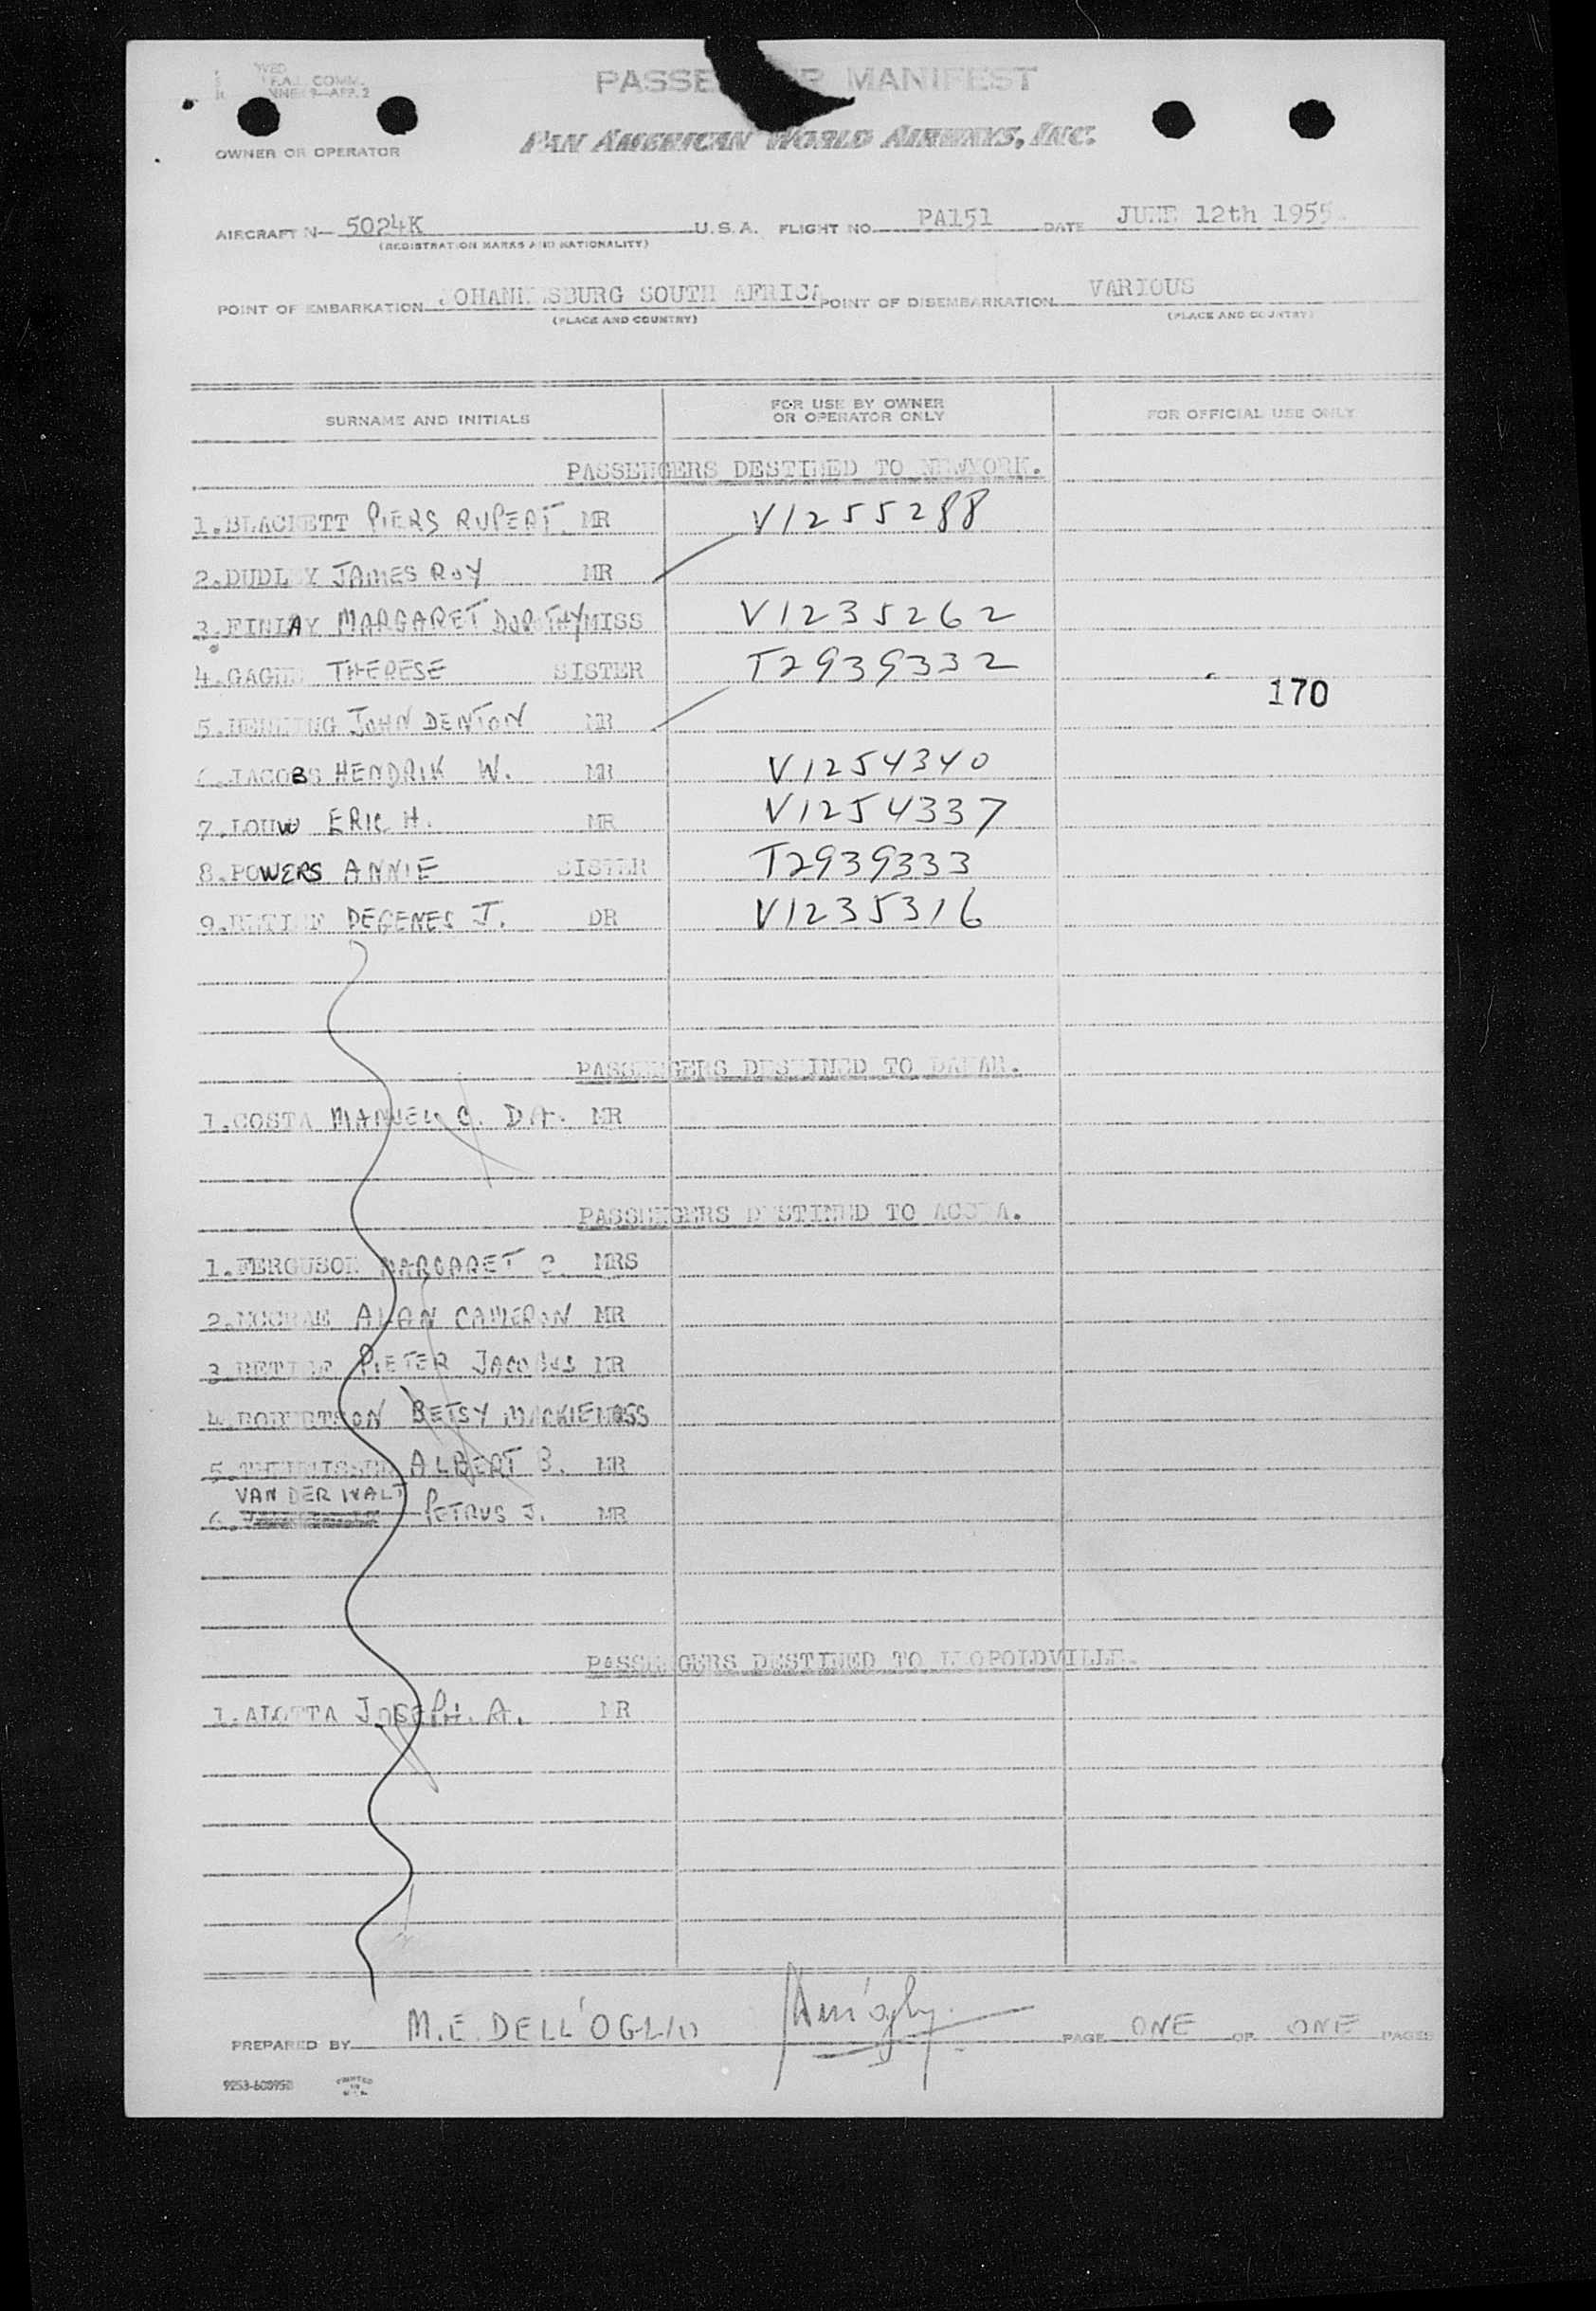 F.A.L COMM.
9—APP. 2
PASSE R MANIFEST
PAN AMERICAN WORLD AIRWAYS, INC.
OWNER OR OPERATOR
AIRCRAFT N— 5024K U.S.A. FLIGHT NO. PA151 DATE JUNE 12th 1955.
(REGISTRATION MARKS AND NATIONALITY)
POINT OF EMBARKATION JOHANNESBURG SOUTH AFRICA POINT OF DISEMBARKATION VARIOUS
(PLACE AND COUNTRY) (PLACE AND COUNTRY)
SURNAME AND INITIALS FOR USE BY OWNER OR OPERATOR ONLY FOR OFFICIAL USE ONLY
PASSENGERS DESTINED TO NEWYORK.
1.BLACKETT PIERS RUPERT. MR V1255288
2.DUDLEY JAMES ROY MR
3.FINLAY MARGARET DOROTHY MISS V1235262
4.GAGNE THERESE SISTER T2939332
170
5. JOHN DENTON MR
6.JACOBS HENDRIK W. MR V1254340
7.LOUW ERIC H. MR V1254337
8.POWERS ANNIE SISTER T2939333
9.RETIEF J. DR V1235316
PASSENGERS DESTINED TO DAKAR.
1.COSTA MANUEL C. DA. MR
PASSENGERS DESTINED TO ACCRA.
1.FERGUSON MARGARET C. MRS
2.MCCRAE ALAN CAMERON MR
3.RETIEF PIETER JACOBUS MR
4.ROBERTSON BETSY MACKIE MISS
5. ALBERT B. MR
VAN DER WALT
6. PETRUS J. MR
PASSENGERS DESTINED TO LEOPOLDVILLE.
1.ALOTTA JOSEPH. A. MR
PREPARED BY M.E. DELL'OGLIO PAGE ONE OF ONE PAGES
9253-600950 PRINTED IN U.S.A.